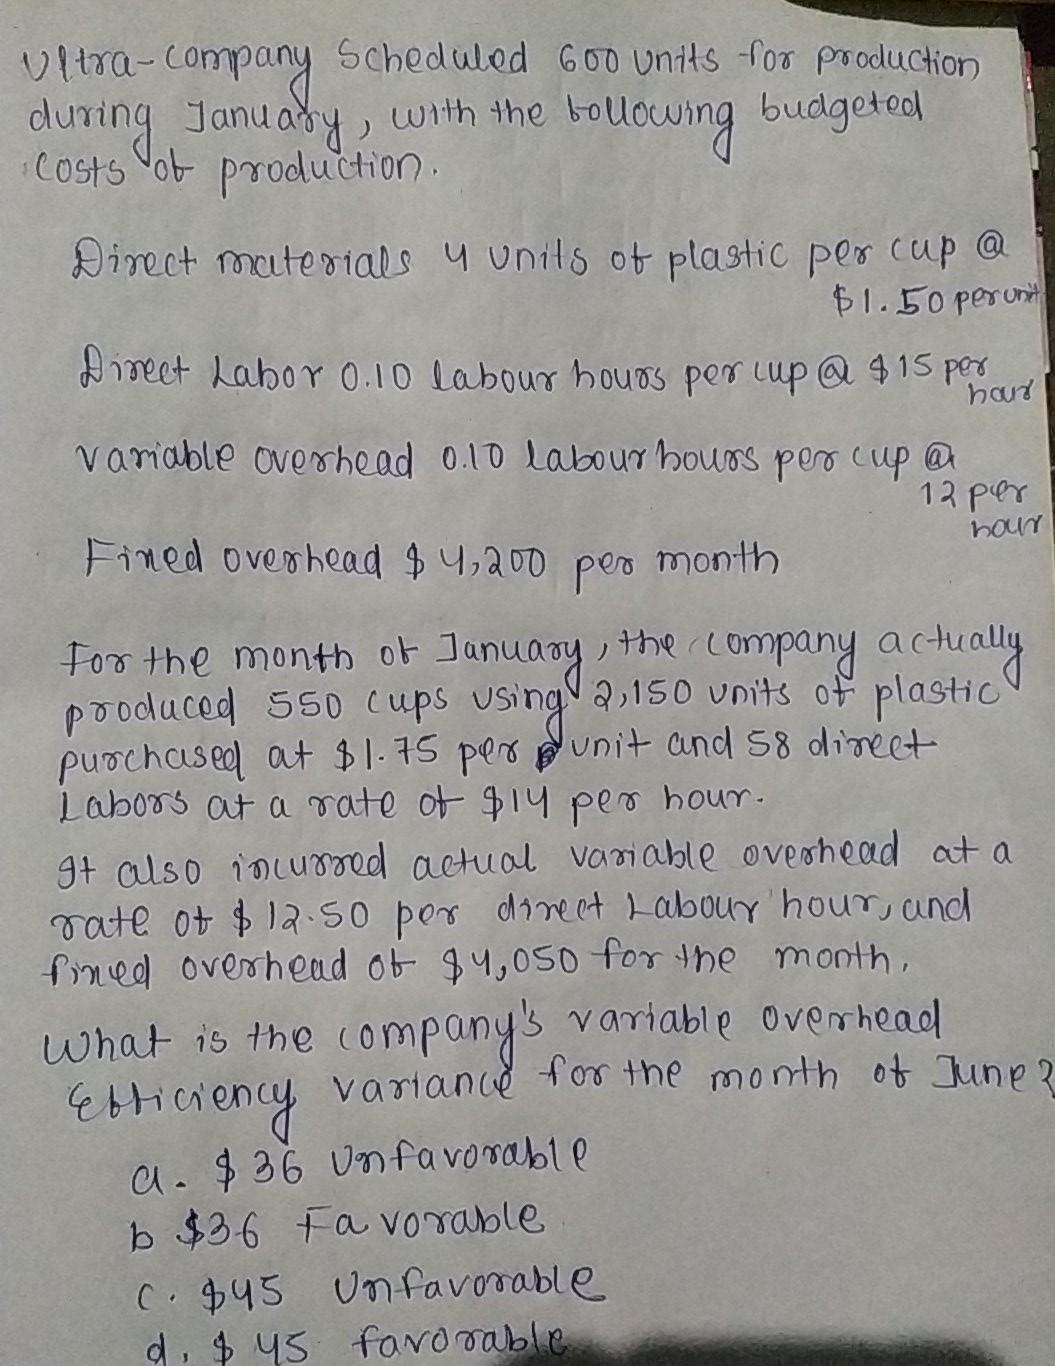 Ultra-company Scheduled 600 units for production
during January, with the following budgeted
Costs of production.
Direct materials 4 units of plastic per cup @
$1.50 per unit
Direct Labor 0.10 labour hours per cup @ $15 per
hour
variable overhead 0.10 labour hours per cup @
12 per
hour
Fixed overhead $4,200 per month
For the month of January, the company actually
produced 550 cups using 2,150 units of plastic
purchased at $1.75 per unit and 58 direct
Labors at a rate of $14 per hour.
It also incurred actual variable overhead at a
rate of $12.50 per direct Labour hour, and
fixed overhead of $4,050 for the month.
What is the company's variable overhead
Efficiency variance for the month of June?
a. $36 Unfavorable
b $36 Favorable
c. $45 Unfavorable
d. $45 favorable